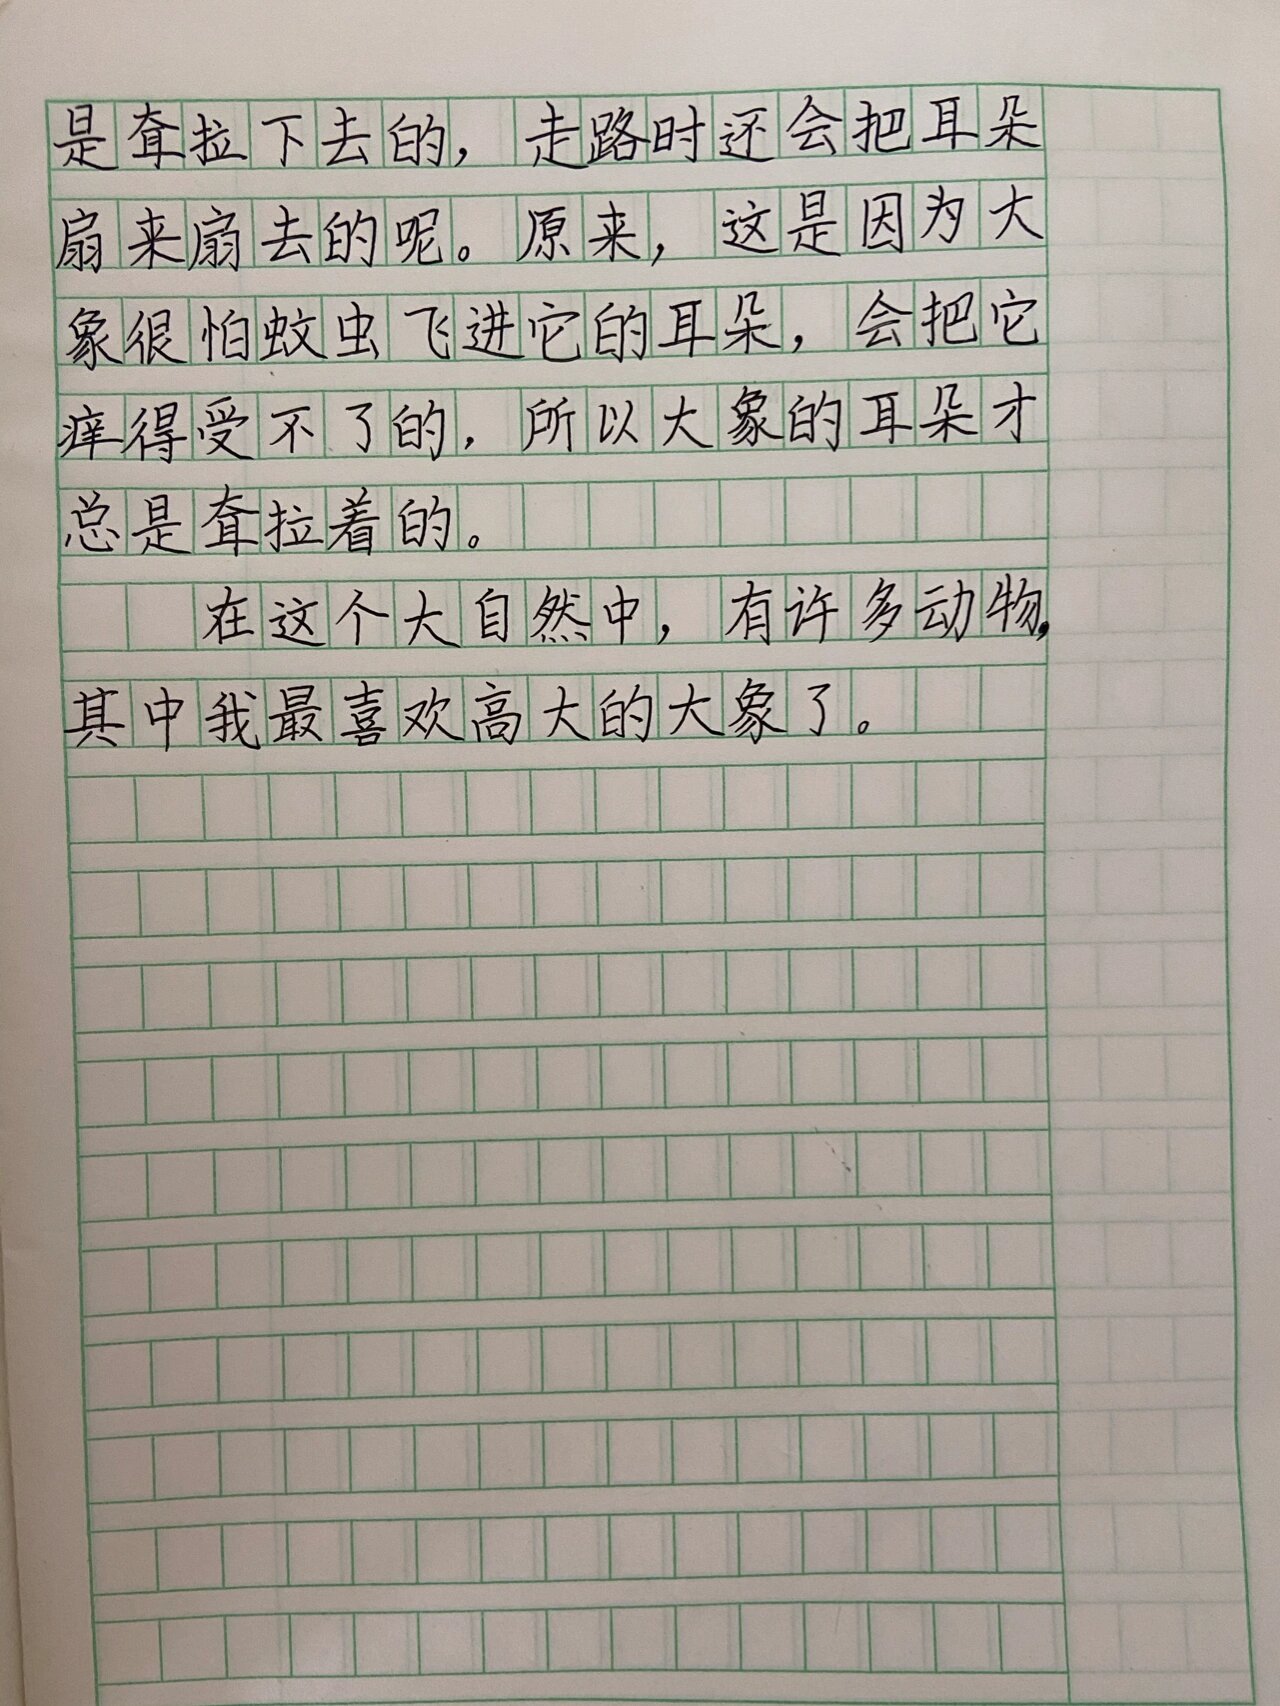 是耷拉下去的，走路时还会把耳朵
扇来扇去的呢。原来，这是因为大
象很怕蚊虫飞进它的耳朵，会把它
痒得受不了的，所以大象的耳朵才
总是耷拉着的。
在这个大自然中，有许多动物，
其中我最喜欢高大的大象了。